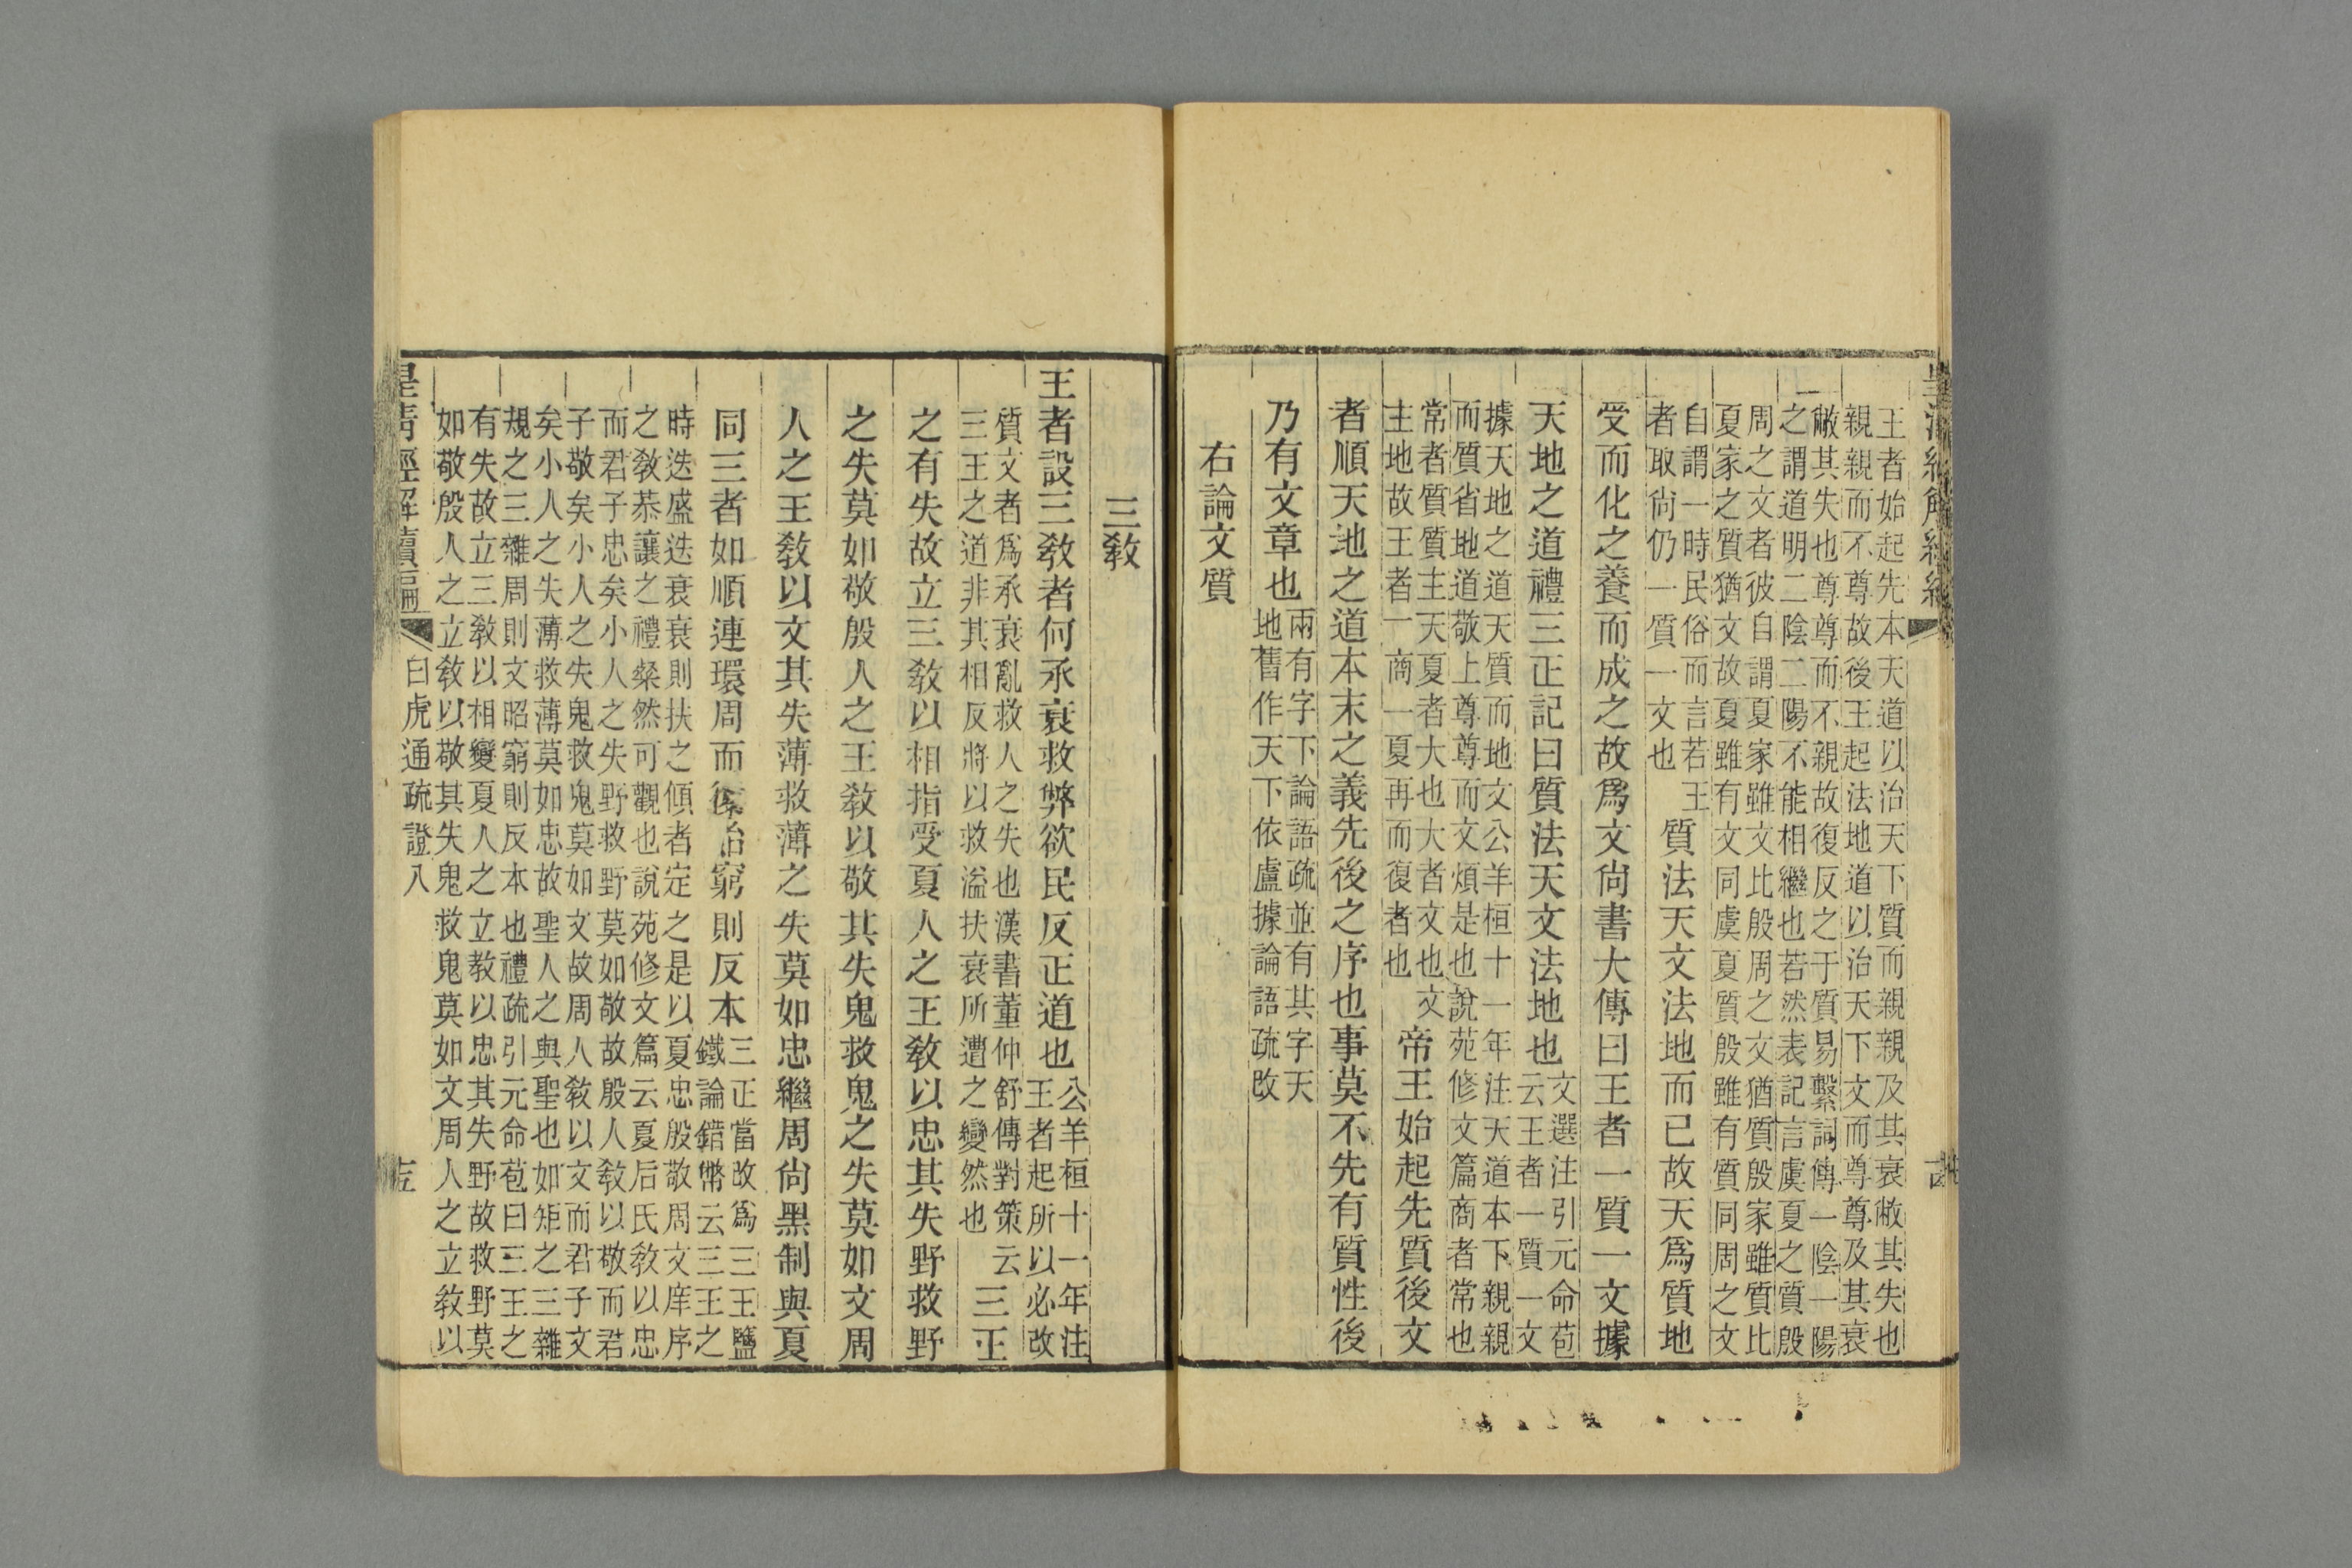 王者始起先本天道以治天下質而親親及其衰敝其失也
親親而不尊尊故後王起法地道以治天下文而尊尊及其衰
敝其失也尊尊而不親故復反之于質易繫詞傳一陰一陽
之謂道明二陰二陽不能相繼也若然表記言虞夏之質殷
周之文者彼自謂夏家雖文比殷周之文猶質殷家雖質比
夏家之質猶文故夏雖有文同虞夏質殷雖有質同周之文
自謂一時民俗而言若王
者取尙仍一質一文也
質法天文法地而已故天爲質地
受而化之養而成之故爲文尙書大傳曰王者一質一文據
天地之道禮三正記曰質法天文法地也
文選注引元命苞
云王者一質一文
據天地之道天質而地文公羊桓十一年注天道本下親親
而質省地道敬上尊尊而文煩是也說苑修文篇商者常也
常者質質主天夏者大也大者文也文
主地故王者一商一夏再而復者也
帝王始起先質後文
者順天地之道本末之義先後之序也事莫不先有質性後
乃有文章也
兩有字下論語疏並有其字天
地舊作天下依盧據論語疏改
右論文質
三敎
王者設三敎者何承衰救弊欲民反正道也
公羊桓十一年注
王者起所以必改
質文者爲承衰亂救人之失也漢書董仲舒傳對策云
三王之道非其相反將以救溢扶衰所遭之變然也
三正
之有失故立三敎以相指受夏人之王敎以忠其失野救野
之失莫如敬殷人之王敎以敬其失鬼救鬼之失莫如文周
人之王敎以文其失薄救薄之失莫如忠繼周尙黑制與夏
同三者如順連環周而復始窮則反本
三正當改爲三王鹽
鐵論錯幣云三王之
時迭盛迭衰衰則扶之傾者定之是以夏忠殷敬周文庠序
之敎恭讓之禮粲然可觀也說苑修文篇云夏后氏敎以忠
而君子忠矣小人之失野救野莫如敬故殷人敎以敬而君
子敬矣小人之失鬼救鬼莫如文故周人敎以文而君子文
矣小人之失薄救薄莫如忠故聖人之與聖也如矩之三雜
規之三雜周則文昭窮則反本也禮疏引元命苞曰三王之
有失故立三敎以相變夏人之立教以忠其失野故救野莫
如敬殷人之立敎以敬其失鬼救鬼莫如文周人之立敎以
皇清經解續編
白虎通疏證八